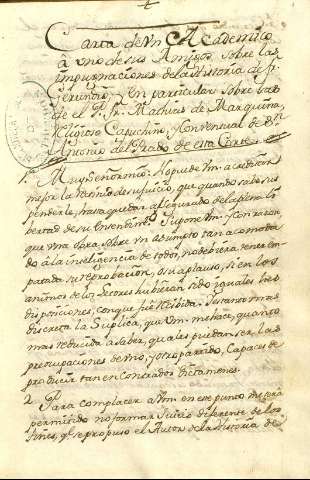 Carta de Vn Academico
à uno de sus Amigos sobre las
impugnaciones de la Historia de fr.
Gerundio, y en particular sobre la
de el P. Fr. Mathias de Marquina,
Religioso Capuchino, Conventual de Sn.
Antonio del Prado de esta Corte.
1. Muy Señor mio: No puede Vm. acreditar
mejor lo de su juicio, que quando sabe sus
penderle, hasta quedar assegurado de la
de su Supone Vm. con razon,
que vna obra sobre vn asumpto tan acomoda
do à la inteligencia de todos, no debiera tener con
su reprobacion, ò su aplauso, si en los
animos de los Lectores hubieran sido iguales las
disposiciones, con que fuè recibida. tan mas
discreta la Suplica, que Vm. me hace, quanto
mas reducida à saber, quales puedan ser las
preocupaciones de vno, y otro partido, capaces de
producir tan encontrados dictamenes.
2. Para complacer à Vm. en este punto me serà
permitido no formar Juicio diferente de los
fines, q. se propuso el Autor de la Historia de